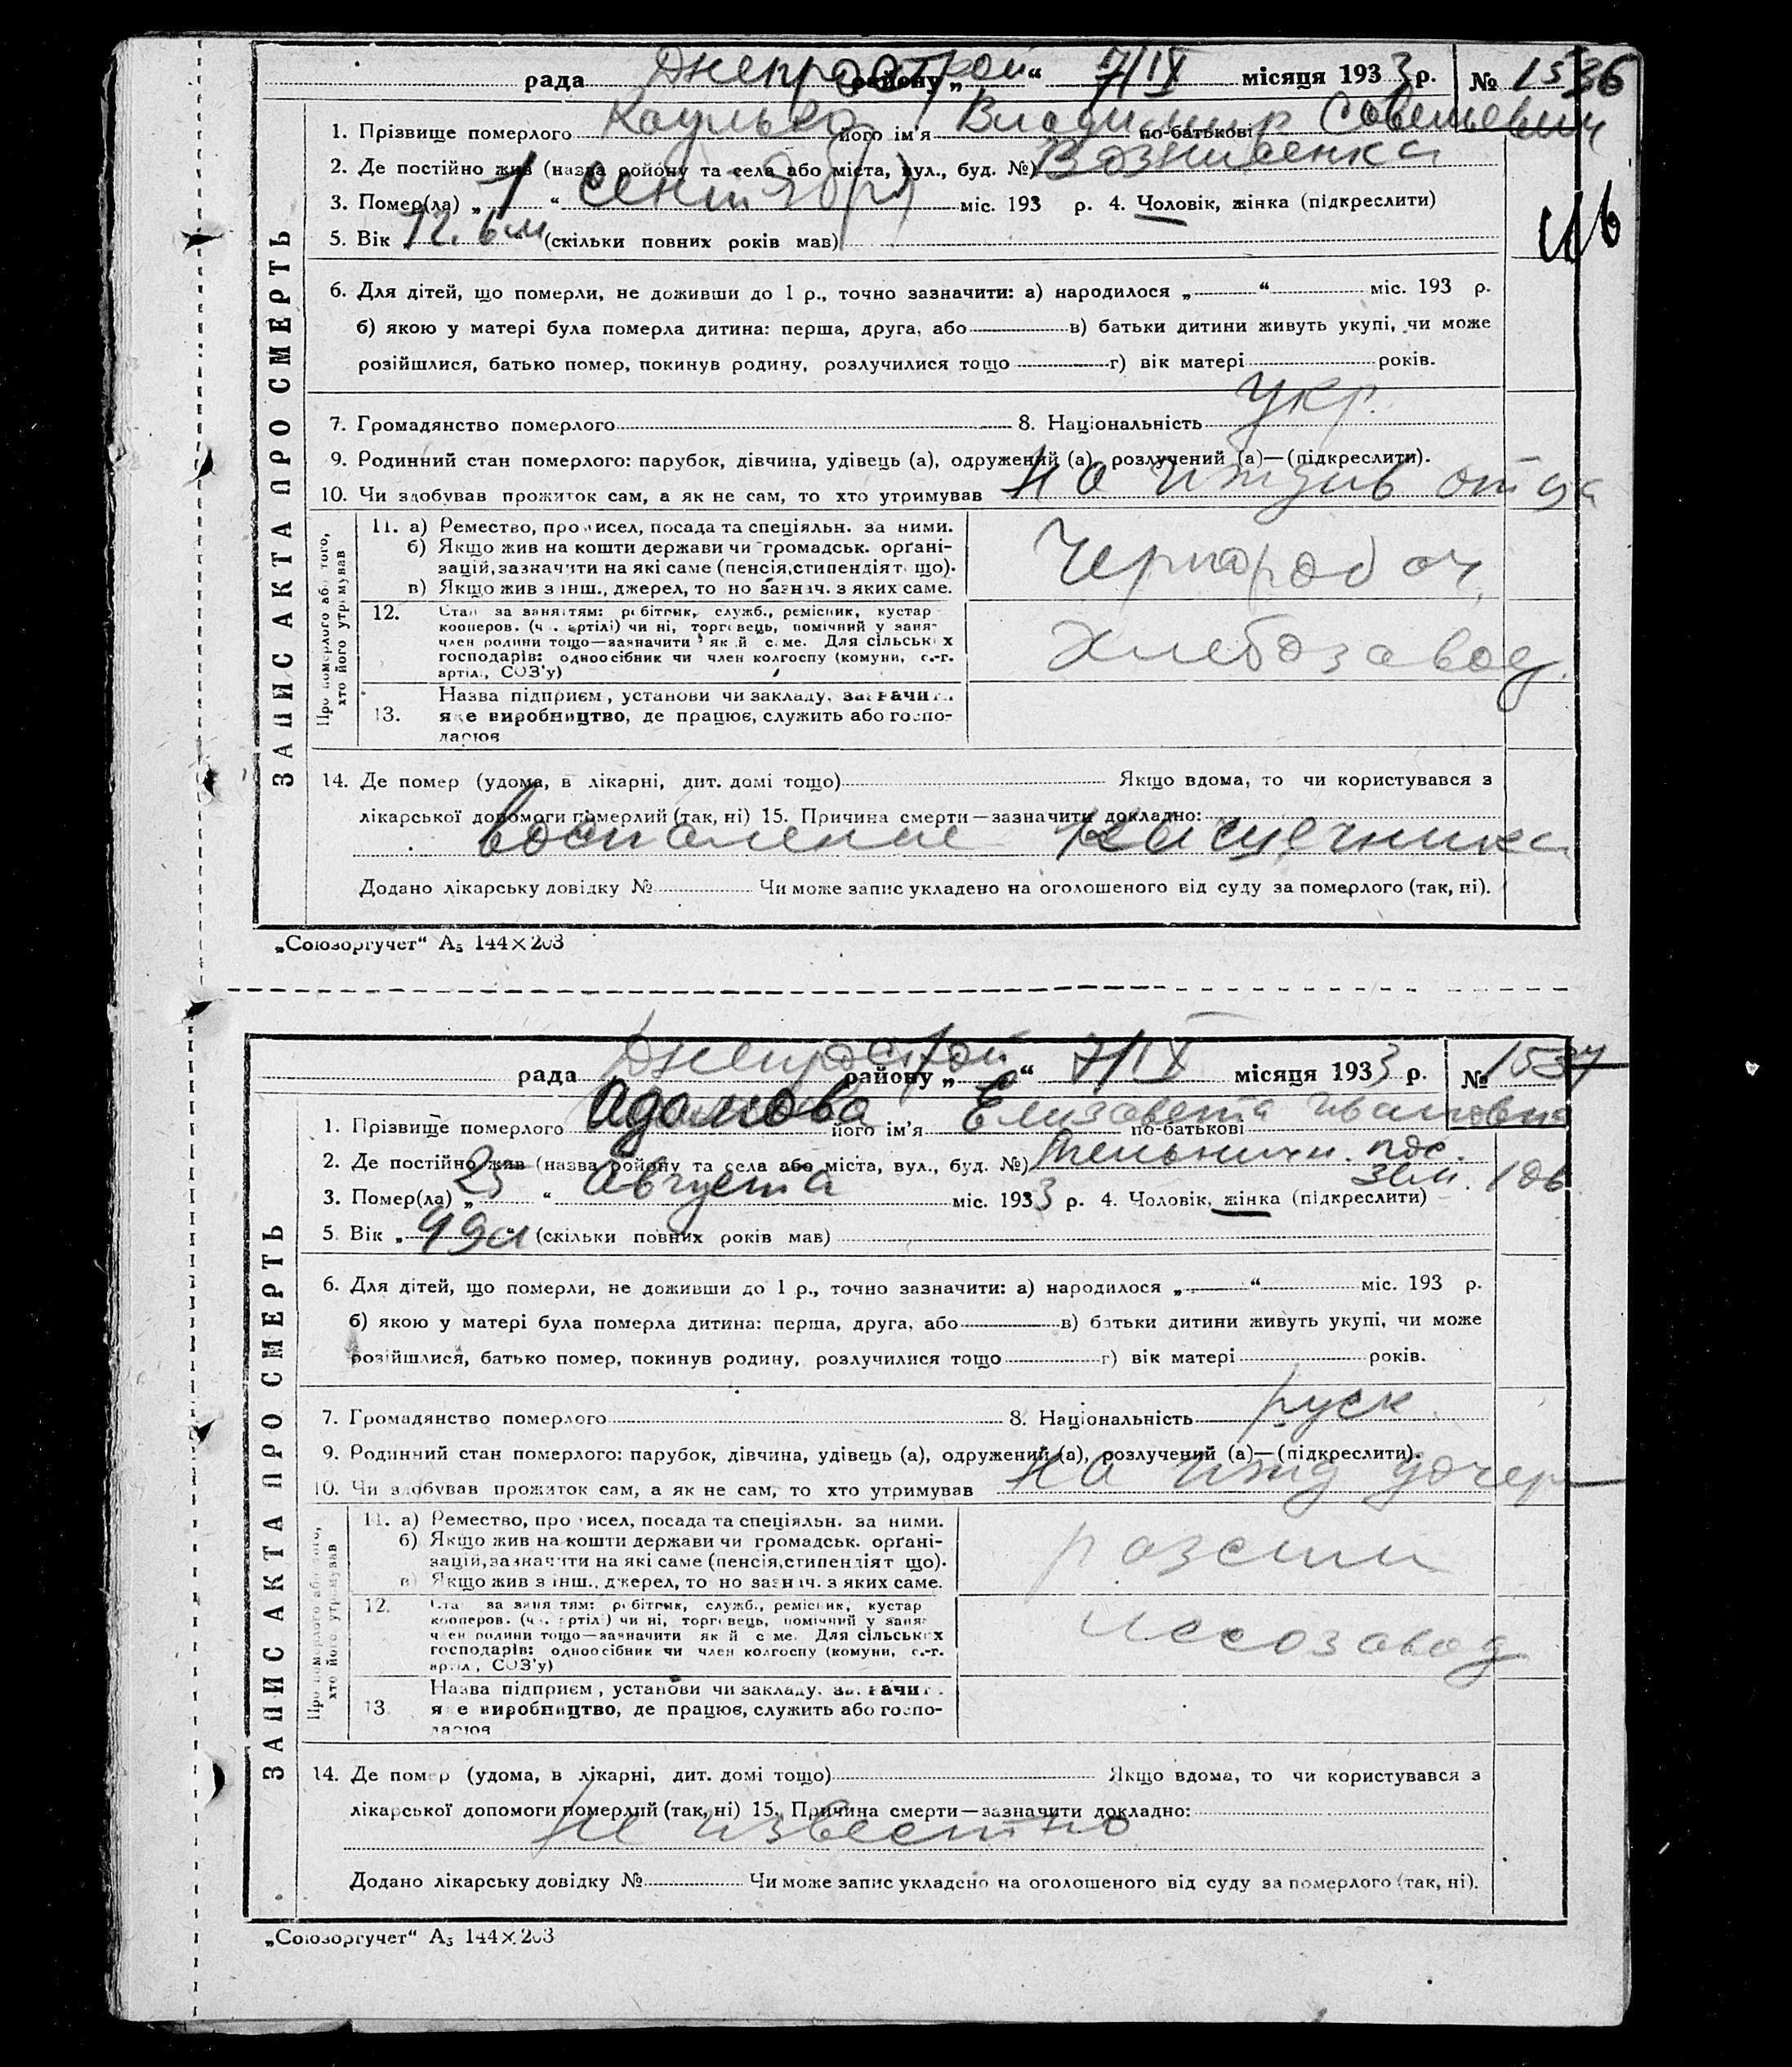 рада Днепрострой району „ “ 7/IX місяця 1933 р. № 1536
1. Прізвище померлого його ім'я Владимир по-батькові Савельевич
2. Де постійно жив (назва ройону та села або міста, вул., буд. №) Вознисенка
3. Помер(ла) „ 1 “ сентября міс. 193 р. 4. Чоловік, жінка (підкреслити)
5. Вік 1г. 6м (скільки повних років мав)
6. Для дітей, що померли, не доживши до 1 р., точно зазначити: а) народилося „ “ міс. 193 р.
б) якою у матері була померла дитина: перша, друга, або в) батьки дитини живуть укупі, чи може
розійшлися, батько помер, покинув родину, розлучилися тощо г) вік матері років.
7. Громадянство померлого 8. Національність укр.
9. Родинний стан померлого: парубок, дівчина, удівець (а), одружений (а), розлучений (а)—(підкреслити).
10. Чи здобував прожиток сам, а як не сам, то хто утримував на иждив отца
ЗАПИС АКТА ПРО СМЕРТЬ
Про померлого або того, хто його утримував
11. а) Ремество, про исел, посада та спеціяльн. за ними.
б) Якщо жив на кошти держави чи громадськ. орґані-
зацій, зазначити на які саме (пенсія, стипендіят що).
в) Якщо жив з інш., джерел, то но зазнач. з яких саме.
Чернороб оч.
12. Стан за заняттям: робітник, служб., ремісник, кустар
кооперов. (ч. артілі) чи ні, торговець, помічний у заня-
член родини тощо—зазначити як й с ме. Для сільськ х
господарів: одноосібник чи член колгоспу (комуни, с.-г.
артіл., СОЗ'у)
Хлебозавод.
13. Назва підприєм, установи чи закладу, зазначити
яке виробництво, де працює, служить або госпо-
дарює
14. Де помер (удома, в лікарні, дит. домі тощо) Якщо вдома, то чи користувався з
лікарської допомоги померлий (так, ні) 15. Причина смерти—зазначити докладно:
воспаление кишечника
Додано лікарську довідку № Чи може запис укладено на оголошеного від суду за померлого (так, ні).
„Союзоргучет“ А₅ 144×203
рада Днепрострой району „ “ 7/IX місяця 1933 р. № 1537
1. Прізвище померлого Адамова його ім'я Елизавета по-батькові Ивановна
2. Де постійно жив (назва ройону та села або міста, вул., буд. №) Мельничн. пос.
3. Помер(ла) „ 25 “ Августа міс. 1933 р. 4. Чоловік, жінка (підкреслити)
5. Вік „ 49л “ (скільки повних років мав)
6. Для дітей, що померли, не доживши до 1 р., точно зазначити: а) народилося „ “ міс. 193 р.
б) якою у матері була померла дитина: перша, друга, або в) батьки дитини живуть укупі, чи може
розійшлися, батько помер, покинув родину, розлучилися тощо г) вік матері років.
7. Громадянство померлого 8. Національність руск
9. Родинний стан померлого: парубок, дівчина, удівець (а), одружений (а), розлучений (а)—(підкреслити).
10. Чи здобував прожиток сам, а як не сам, то хто утримував на ижд дочер
ЗАПИС АКТА ПРО СМЕРТЬ
Про померлого або того, хто його утримував
11. а) Ремество, про исел, посада та спеціяльн. за ними.
б) Якщо жив на кошти держави чи громадськ. орґані-
зацій, зазначити на які саме (пенсія, стипендіят що).
в) Якщо жив з інш., джерел, то но зазнач. з яких саме.
12. Стан за заняттям: робітник, служб., ремісник, кустар
кооперов. (ч. артілі) чи ні, торговець, помічний у заня-
член родини тощо—зазначити як й с ме. Для сільськ х
господарів: одноосібник чи член колгоспу (комуни, с.-г.
артіл., СОЗ'у)
Лесозавод
13. Назва підприєм, установи чи закладу, зазначити
яке виробництво, де працює, служить або госпо-
дарює
14. Де помер (удома, в лікарні, дит. домі тощо) Якщо вдома, то чи користувався з
лікарської допомоги померлий (так, ні) 15. Причина смерти—зазначити докладно:
не известно
Додано лікарську довідку № Чи може запис укладено на оголошеного від суду за померлого (так, ні).
„Союзоргучет“ А₅ 144×203